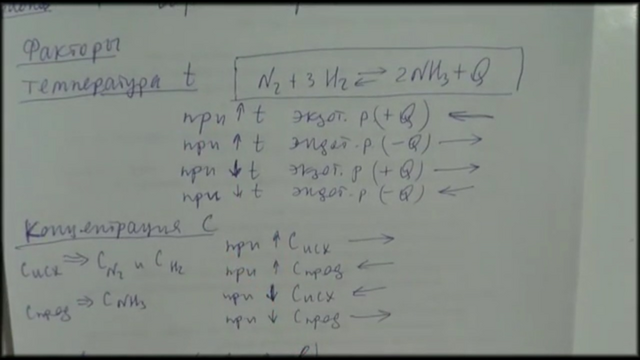 Факторы
температура t
N₂ + 3H₂ ⇄ 2NH₃ + Q
при ↑ t экзот. р (+Q) ←
при ↑ t эндот. р (-Q) →
при ↓ t экзот. р (+Q) →
при ↓ t эндот. р (-Q) ←
Концентрация C
Cисх ⇒ C_N₂ и C_H₂
Cпрод ⇒ C_NH₃
при ↑ Cисх →
при ↑ Cпрод ←
при ↓ Cисх ←
при ↓ Cпрод →